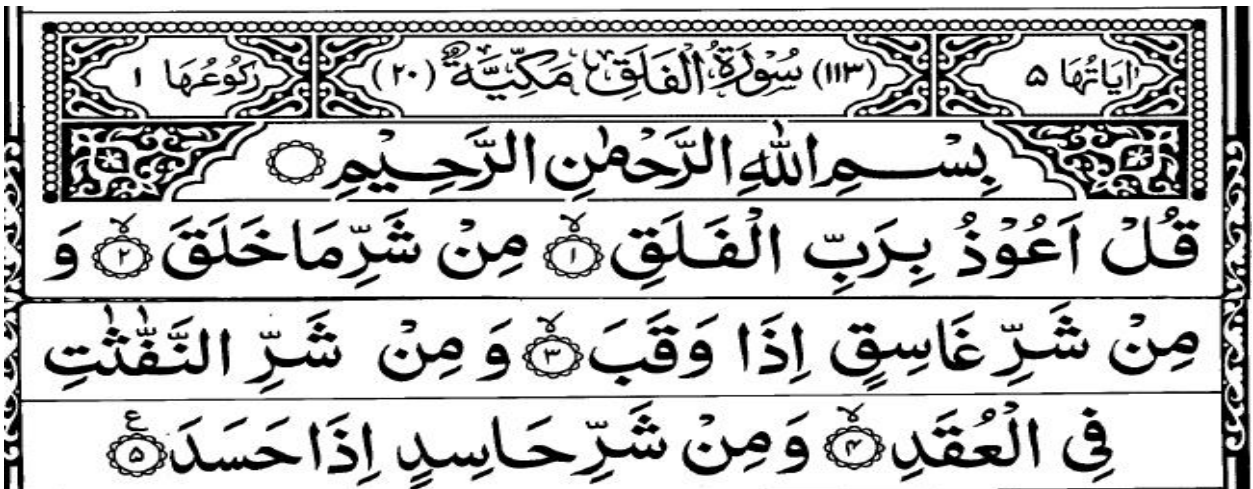 اٰيَاتُهَا ۵ (۱۱۳) سُوْرَةُ الْفَلَقِ مَكِّيَّةٌ (۲۰) رُكُوْعُهَا ۱
بِسْمِ اللّٰهِ الرَّحْمٰنِ الرَّحِيْمِ ○
قُلْ اَعُوْذُ بِرَبِّ الْفَلَقِ ۙ﴿۱﴾ مِنْ شَرِّ مَا خَلَقَ ۙ﴿۲﴾ وَ
مِنْ شَرِّ غَاسِقٍ اِذَا وَقَبَ ۙ﴿۳﴾ وَ مِنْ شَرِّ النَّفّٰثٰتِ
فِى الْعُقَدِ ۙ﴿۴﴾ وَ مِنْ شَرِّ حَاسِدٍ اِذَا حَسَدَ ﴿۵﴾ ع